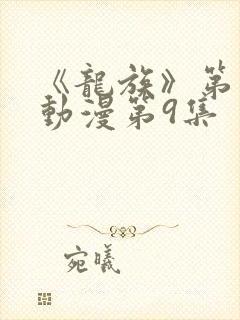 《龍族》第
動漫第9集
宛曦